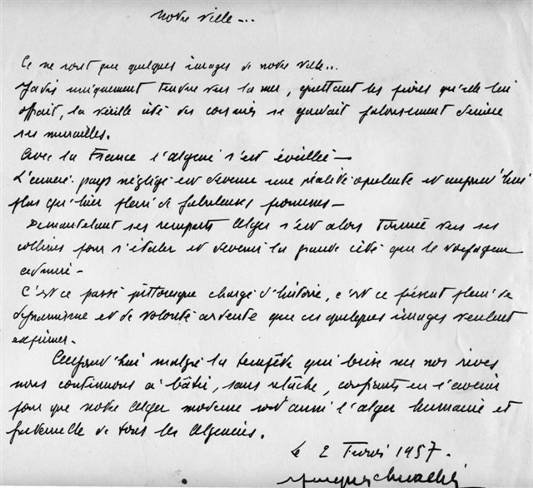 Notre ville...
Ce ne sont que quelques images de notre ville...
Jadis uniquement tendue vers la mer, guettant les proies qu'elle lui
offrait, la vieille cité des corsaires se gardait jalousement derrière
ses murailles.
Avec la France l'Algérie s'est éveillée —
L'arrière pays négligé est devenu une réalité opulente et aujourd'hui
plus qu'hier pleine de fabuleuses promesses —
Démantelant ses remparts Alger s'est alors tournée vers ses
collines pour s'étaler et devenir la grande cité que le voyageur
admire —
C'est ce passé pittoresque chargé d'histoire, c'est ce présent plein de
dynamisme et de volonté ardente que ces quelques images veulent
exprimer.
Aujourd'hui malgré la tempête qui brise sur nos rives
nous continuons à bâtir, sans relâche, confiants en l'avenir
pour que notre Alger moderne soit aussi l'Alger humaine et
fraternelle de tous les Algériens.
le 2 Février 1957.